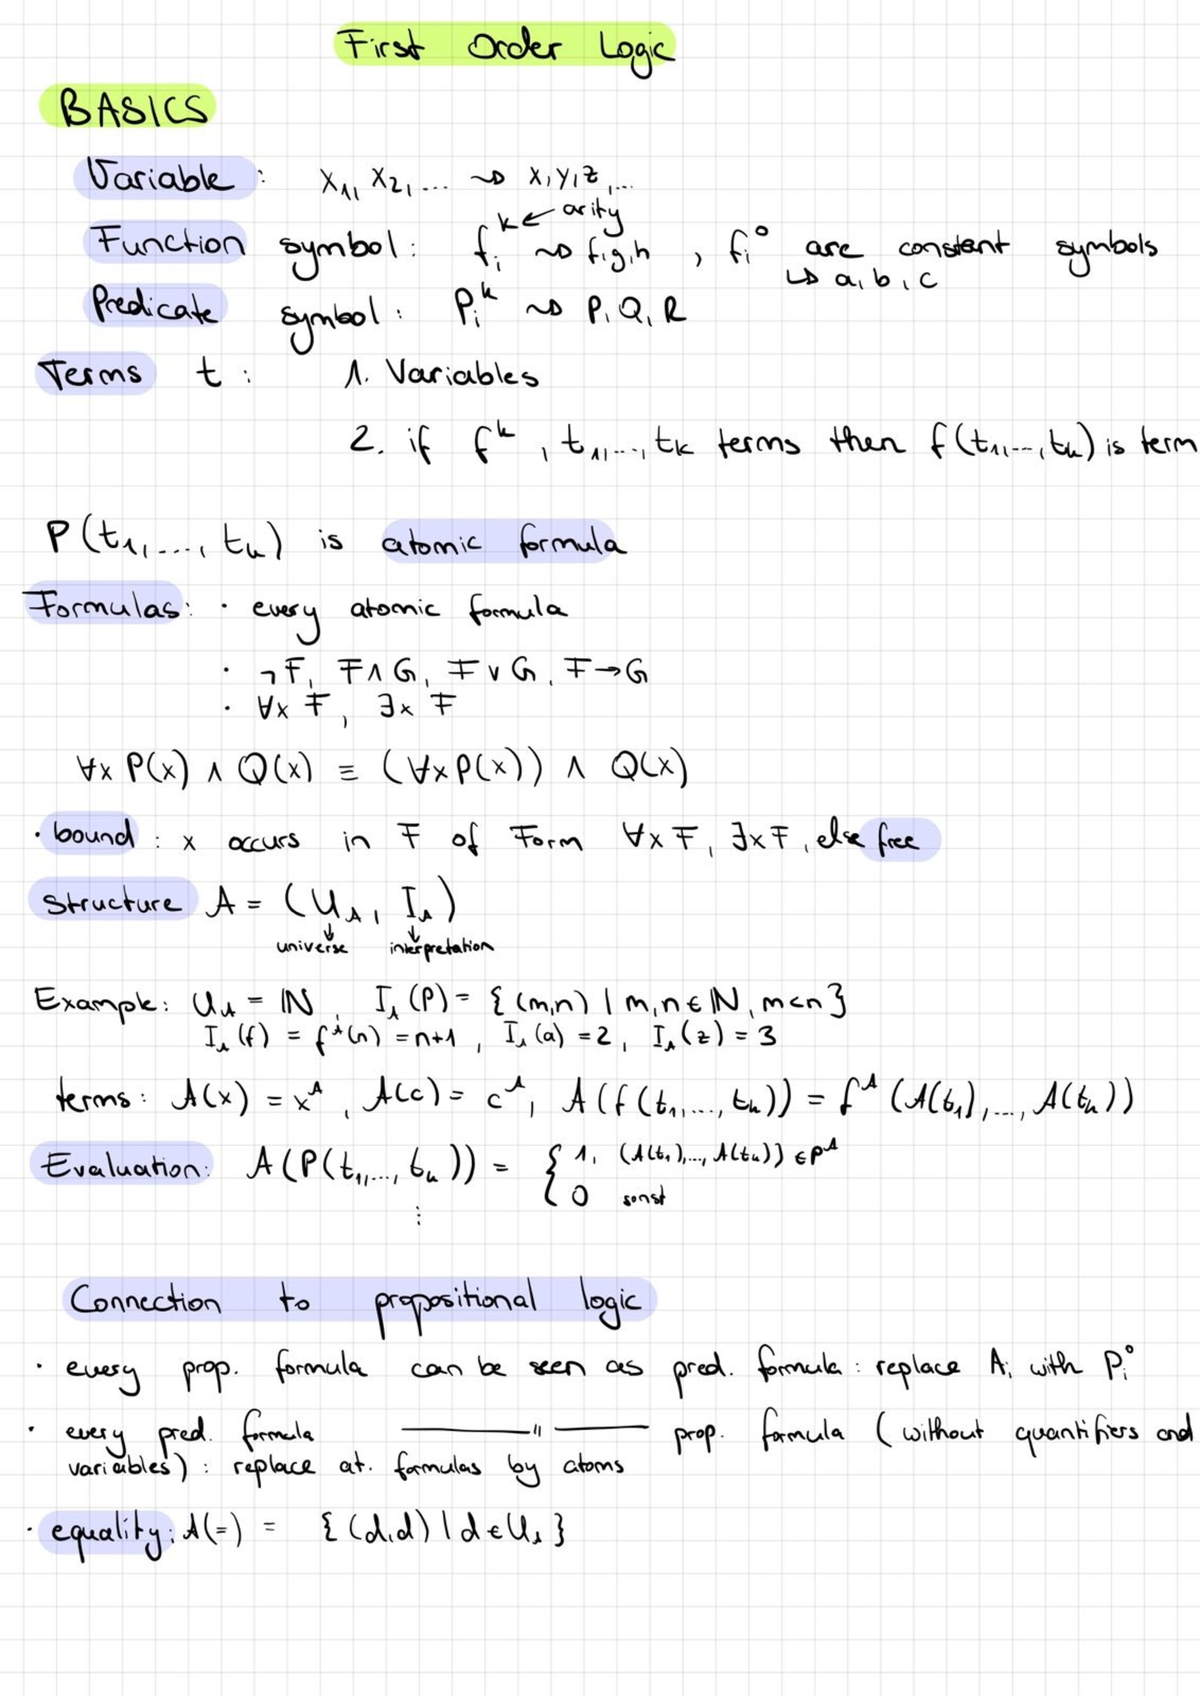 First Order Logic
BASICS
Variable: x₁, x₂, ... ⇝ x, y, z, ...
Function symbol: fᵢᵏ ← arity ⇝ f, g, h, fᵢ⁰ are constant symbols
↳ a, b, c
Predicate symbol: Pᵢᵏ ⇝ P, Q, R
Terms t: 1. Variables
2. if fᵏ, t₁, ..., tₖ terms then f(t₁, ..., tₖ) is term
P(t₁, ..., tₖ) is atomic formula
Formulas: · every atomic formula
· ¬F, F∧G, F∨G, F→G
· ∀x F, ∃x F
∀x P(x) ∧ Q(x) ≡ (∀x P(x)) ∧ Q(x)
· bound: x occurs in F of Form ∀x F, ∃x F, else free
Structure A = (U_A, I_A)
↓ universe ↓ interpretation
Example: U_A = ℕ, I_A(P) = {(m,n) | m,n ∈ ℕ, m<n}
I_A(f) = f^A(n) = n+1, I_A(a) = 2, I_A(z) = 3
terms: A(x) = x^A, A(c) = c^A, A(f(t₁, ..., tₖ)) = f^A(A(t₁), ..., A(tₖ))
Evaluation: A(P(t₁, ..., tₖ)) = { 1, (A(t₁), ..., A(tₖ)) ∈ P^A
0 sonst
⋮
Connection to propositional logic
· every prop. formula can be seen as pred. formula: replace Aᵢ with Pᵢ⁰
· every pred. formula ——— " ——— prop. formula (without quantifiers and
variables): replace at. formulas by atoms
· equality: A(=) = {(d,d) | d ∈ U_A}